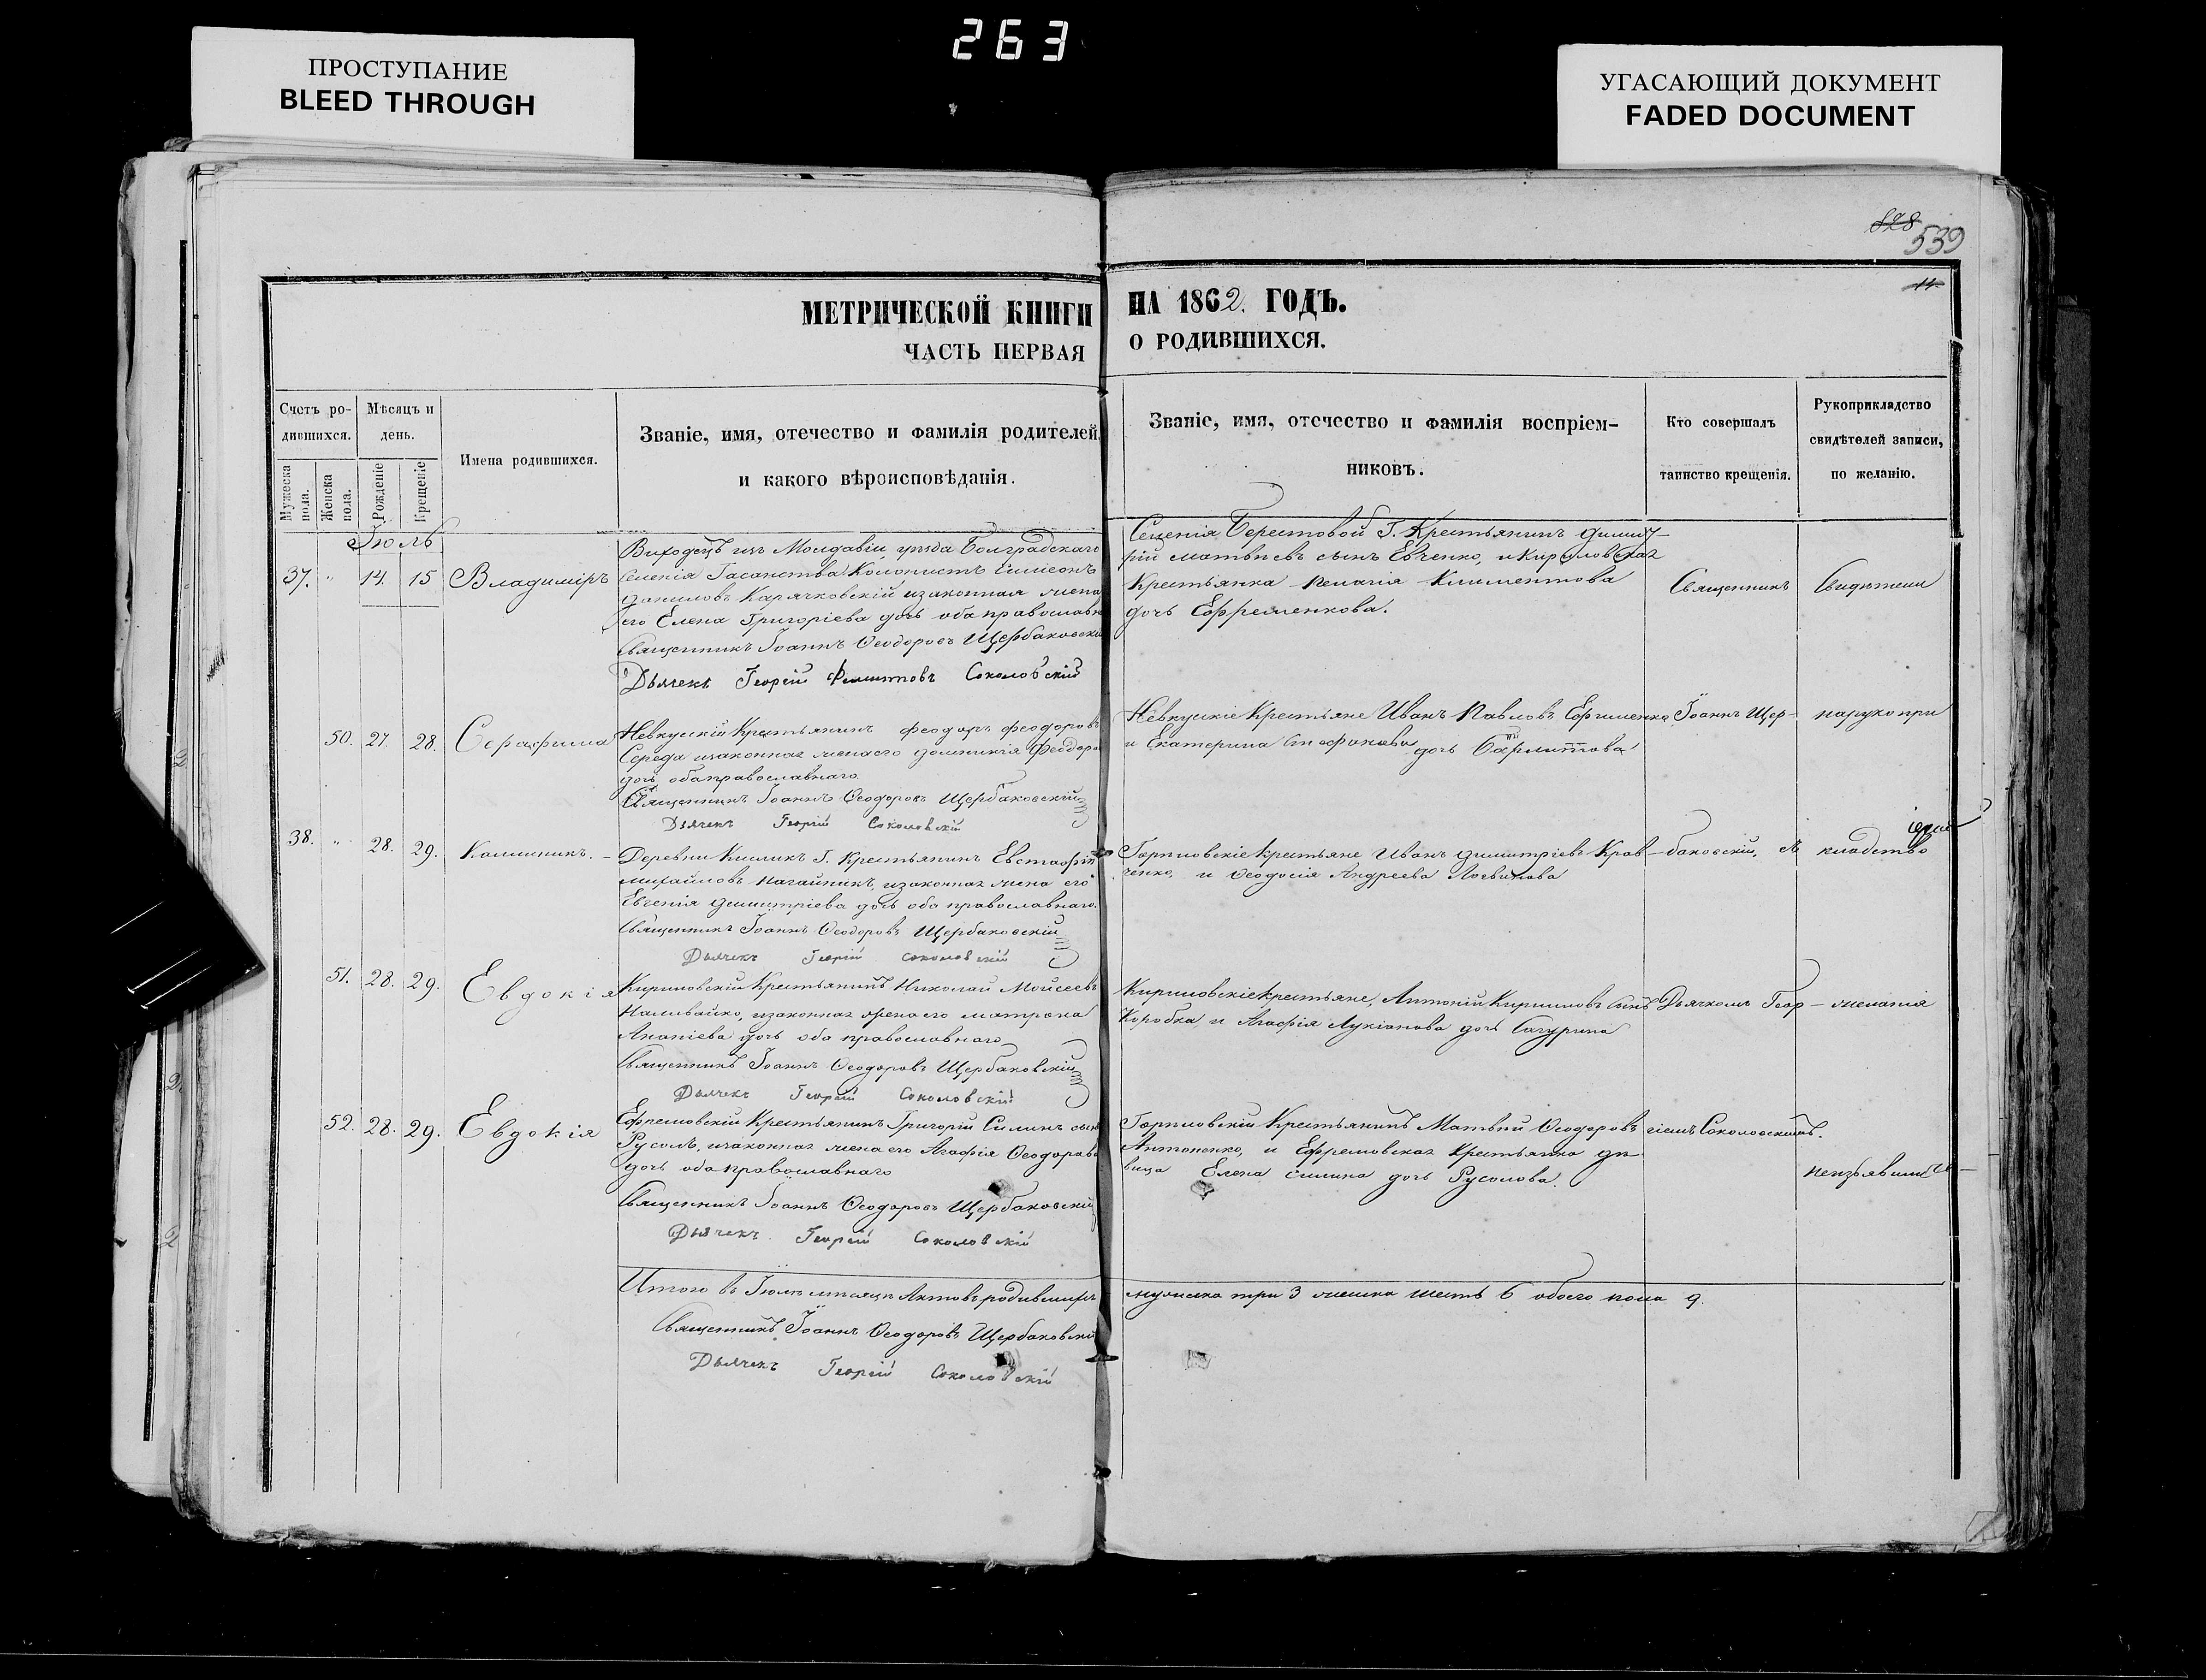 263
ПРОСТУПАНИЕ
BLEED THROUGH
УГАСАЮЩИЙ ДОКУМЕНТ
FADED DOCUMENT
828
539
11.
МЕТРИЧЕСКОЙ КНИГИ НА 1862. ГОДЪ.
ЧАСТЬ ПЕРВАЯ О РОДИВШИХСЯ.
Счетъ ро-
дившихся.
Мужеска пола.
Женска пола.
Мѣсяцъ и
день.
Рожденіе
Крещеніе
Имена родившихся.
Званіе, имя, отечество и фамилія родителей,
и какого вѣроисповѣданія.
Званіе, имя, отечество и фамилія воспріем-
никовъ.
Кто совершалъ
таинство крещенія.
Рукоприкладство
свидѣтелей записи,
по желанію.
Іюль
37. " 14. 15 Владиміръ
Виходецъ изъ Молдавіи, уѣзда Болградскаго
Селенія Колонистъ Симеонъ
Даниловъ Карячковскій и законная жена
его Елена Григоріева дочь оба православн
Священникъ Іоаннъ Ѳеодоровъ Щербаковскій
Дьячекъ Георгій Соколовскій
Селенія Берестовой Г. Крестьянинъ Димит-
рій Матвѣевъ сынъ Евченко, и Кириловская
Крестьянка Пелагія Климентова
дочь Ефременкова.
Священникъ
Свидѣтели
50. 27. 28. Серафима
Невкускій Крестьянинъ Феодоръ Феодоровъ
Середа и законная жена его Домникія Феодоро
дочь оба православнаго
Священникъ Іоаннъ Ѳеодоровъ Щербаковскій
Дьячекъ Георгій Соколовскій
Невкускіе Крестьяне Иванъ Павловъ Ефименко
и Екатерина Стефанова дочь
Іоаннъ Щер-
на рукопри
38. " 28. 29. Каллиникъ.
Деревни Кислика Г. Крестьянинъ Евстафій
Михайловъ Нагайникъ, и законная жена его
Евгенія Димитріева дочь оба православнаго.
Священникъ Іоаннъ Ѳеодоровъ Щербаковскій
Дьячекъ Георгій Соколовскій
Крестьяне Иванъ Димитріевъ Крав-
ченко, и Ѳеодосія Андреева Логвинова
баковскій. съ
кладство
51. 28. 29. Евдокія
Кириловскій Крестьянинъ Николай Мойсеевъ
Наливайко, и законная жена его Матрона
Ананіева дочь оба православнаго
Священникъ Іоаннъ Ѳеодоровъ Щербаковскій
Дьячекъ Георгій Соколовскій
Кириловскіе крестьяне, Антоній Кириловъ сынъ
Коробка, и Агафія Лукіанова дочь
Дьячкомъ Геор-
желанія
52. 28. 29. Евдокія
Ефремовскій Крестьянинъ Григорій Силинъ сынъ
Русолъ, и законная жена его Агафія Ѳеодорова
дочь оба православнаго
Священникъ Іоаннъ Ѳеодоровъ Щербаковскій
Дьячекъ Георгій Соколовскій
Крестьянинъ Матвѣй Ѳеодоровъ
Антоненко, и Ефремовская Крестьянка дѣ-
вица Елена Силина дочь Русолова.
гіемъ Соколовскимъ.
неизъявили
Итого въ Іюлѣ мѣсяцѣ Актовъ родившихъ мужеска три 3 женска шесть 6 обоего пола 9.
Священникъ Іоаннъ Ѳеодоровъ Щербаковскій
Дьячекъ Георгій Соколовскій